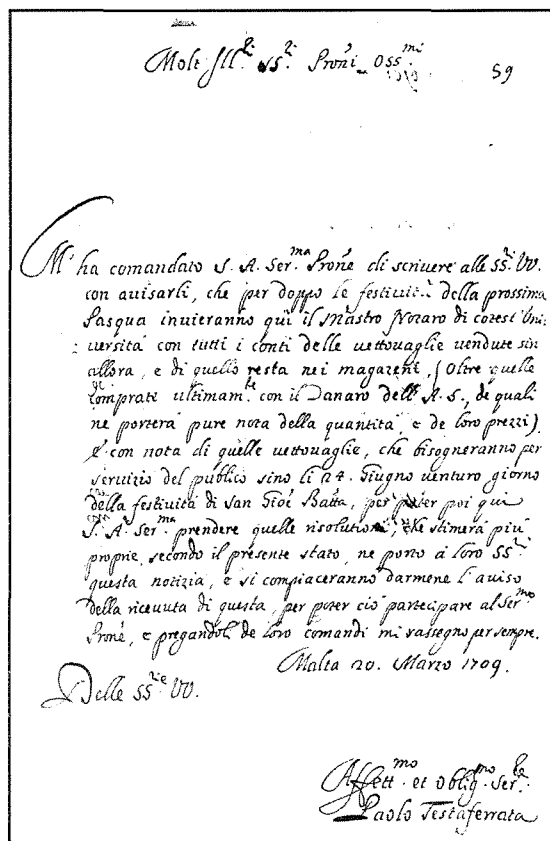 Molt Ill.ri SS.ri Proñi Oss.mi
59
M'ha comandato S. A. Ser.ma Proñe di scrivere alle SS.rie VV.
con avisarli, che per doppo le festività della prossima
Pasqua invieranno qui il Mastro Notaro di cotest'Uni:
:versità con tutti i conti delle vettovaglie vendute sin
allora, e di quello resta nei magazeni, (oltre quelle
comprate ultimam.te con il Danaro dell'A.S., de quali
ne porterà pure nota della quantità, e de loro prezzi)
e con nota di quelle vettovaglie, che bisogneranno per
servizio del publico sino li 24. Giugno venturo giorno
della festività di San Gioẽ Batta, per poter poi qui
S. A. Ser.ma prendere quelle risolutioni, che stimerà più
proprie, secondo il presente stato, ne porto a i loro SS.rie
questa notizia, e si compiaceranno darmene l'aviso
della ricevuta di questa, per poter ciò partecipare al Ser.mo
Proñe, e pregandoli de loro comandi mi rassegno per sempre.
Malta 20. Marzo 1709.
Delle SS.rie VV.
Affett.mo et Oblig.mo Ser.re
Paolo Testaferrata